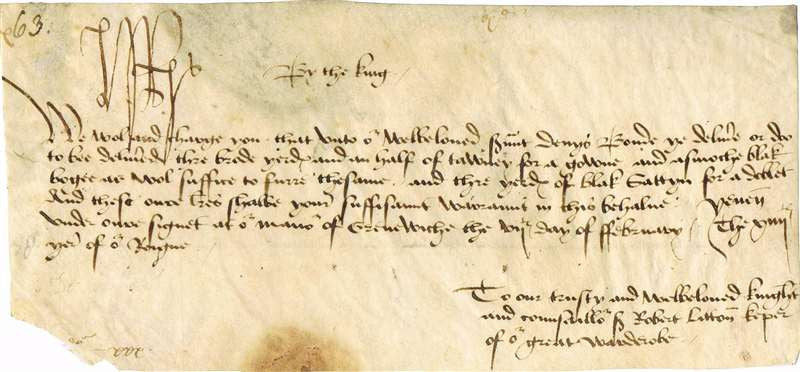 63.
By the king
We wol and charge you that unto or Welbeloved sunt Denys Bonde ye delivre or doo
to bee delivred thre brode yerds and an half of tawney for a gowne and asmoche blak
bogee as wol suffice to furre thesame. and thre yerds of blak Sattyn for a doblet
And these oure lres shalbe your suffisaunt Warannt in this behalve. Yeven
undre oure signet at or manor of Grenewiche the day of ffebruary. The
yere of or Reigne
To our trusty and Welbeloved knight
and counsaillor Sr Robert Litton keper
of or great Warderobe